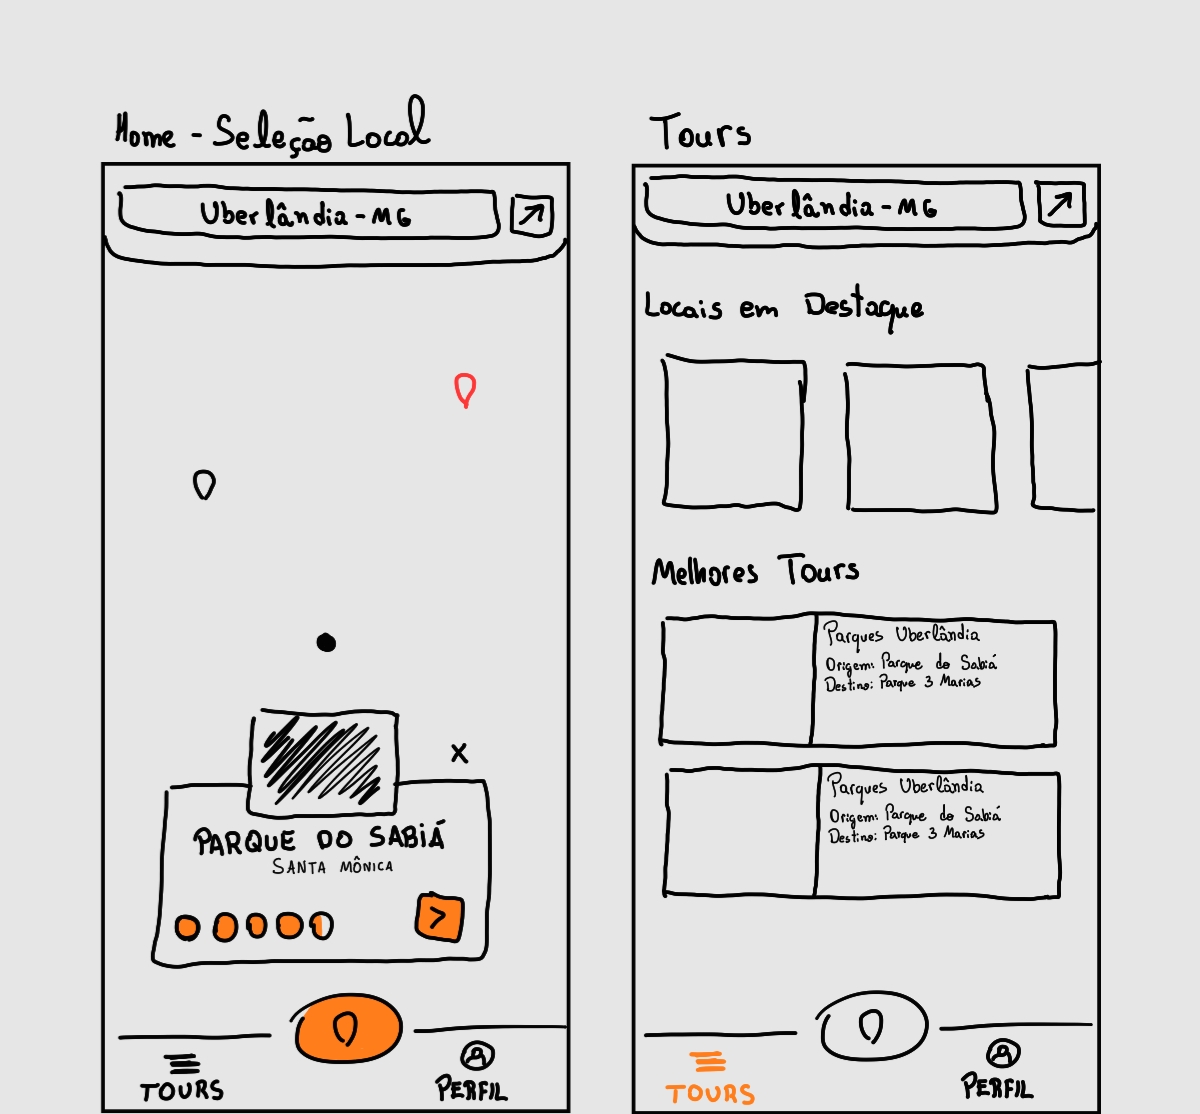 Home - Seleção Local
Uberlândia - MG
x
PARQUE DO SABIÁ
SANTA MÔNICA
>
TOURS
PERFIL
Tours
Uberlândia - MG
Locais em Destaque
Melhores Tours
Parques Uberlândia
Origem: Parque do Sabiá
Destino: Parque 3 Marias
Parques Uberlândia
Origem: Parque do Sabiá
Destino: Parque 3 Marias
TOURS
PERFIL